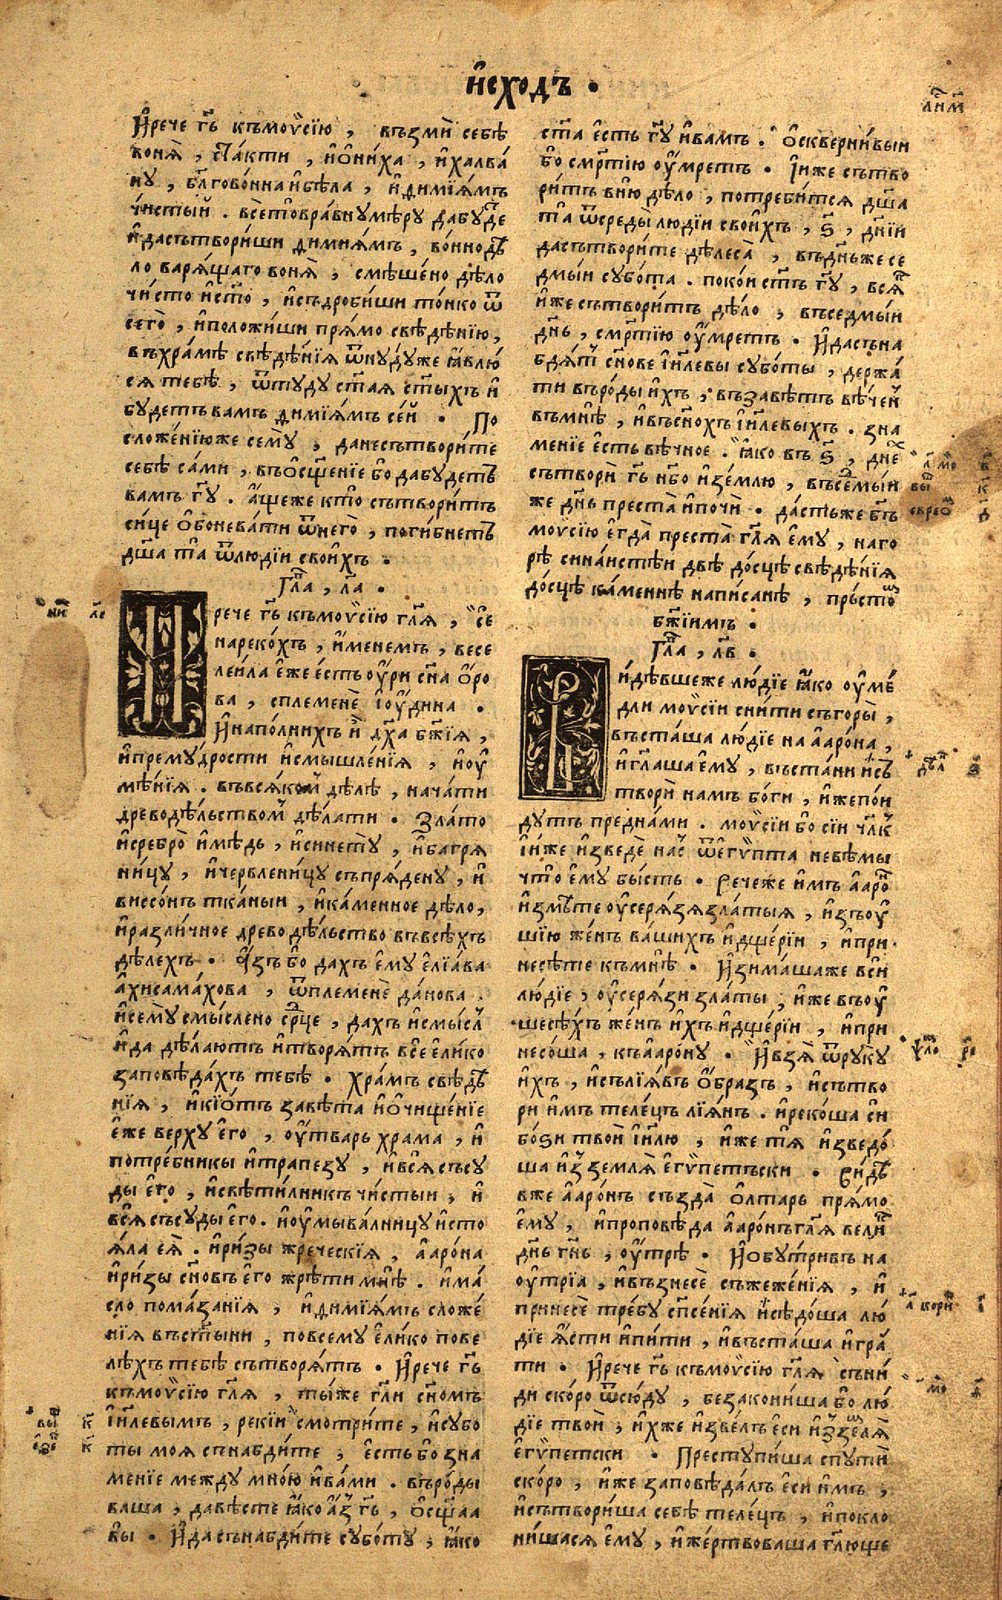 и҆схо́дъ .
И҆рече гд҃ь къмоѷсі́ю , възми́ себѣ̀
воня̀ , ста́кти , и҆ о҆ни́ха , и҆халва́
ну , бл҃гово́нна и҆бѣ́ла , и҆диміѧ́мъ
чи́стый . все́ то въра́вну мѣ́ру да бу́де
и҆да сътвори́ши димиѧ́мъ , во́нно дѣ́
ло варѧ́щаго воня̀ , смѣ́шено дѣ́ло
чи́сто и҆ст҃о , и҆съдроби́ши то́нко ѿ
сего̀ , и҆положи́ши прѧ́мо свѣдѣ́нію ,
въхра́мѣ свѣдѣ́нїя ѿнуду́же ꙗ҆влю́
ся тебѣ̀ , ѿту́ду ст҃ая ст҃ы́хъ и҆
бу́детъ вамъ диміѧ́мъ се́й . По
сложе́ніюже сему̀ , да несътвори́те
себѣ̀ са́ми , въѡ҆сщ҃е́ніе бо дабу́детъ
вамъ гд҃у . а҆́щеже кто̀ сътвори́тъ
си́це ѡ҆боневати ѿ него̀ , поги́бнетъ
дш҃а та̀ ѿ людіи свои́хъ .
Гла , ла .
рече гд҃ь къмоѷсі́ю гл҃я , се
нареко́хъ , и҆́менемъ , весе
леи́ла е҆́же е҆́сть оу҆́ри сн҃а о҆́ро
ва , сплеме́не і҆оу҆́дина .
И҆напо́лнихъ и҆̀ дх҃а бж҃ія ,
и҆прему́дрости и҆смышле́нія , и҆оу
мѣ́нія . въвся́комъ дѣ́лѣ , нача́ти
древодѣ́льствомъ дѣ́лати . зла́то
и҆сребро̀ и҆мѣ́дь , и҆сине́ту , и҆багря
ни́цу , и҆червлени́цу съпря́дену , и҆
виссо́нъ тка́ныи , и҆ка́менное дѣ́ло ,
и҆разли́чное древодѣ́льство въвсѣ́хъ
дѣ́лехъ . А҆́зъ бо да́хъ е҆му̀ е҆ліа́ва
а҆хисама́хова , ѿплеме́не да́нова .
и҆сему̀ смы́слено ср҃це , да́хъ и҆смы́сл
и҆да дѣ́лаютъ и҆творѧ́тъ всѐ е҆ли́ко
заповѣ́дахъ тебѣ̀ . храмъ свѣдѣ́
нія , и҆кіо́тъ завѣ́та и҆ о҆чище́ніе
е҆́же верху̀ е҆го̀ , оу҆́тварь хра́ма , и҆
потре́бники и҆трапе́зу , и҆вся̀ съсу́
ды е҆го̀ , и҆свѣти́лникъ чи́стыи , и҆
вся̀ съсу́ды е҆го̀ . и҆оу҆мыва́лницу и҆сто
ѧ́ла ея̀ . и҆ри́зы жре́ческія , а҆аро́на
и҆ри́зы сн҃овъ е҆го̀ жре́ти мнѣ̀ . и҆ма́
сло пома́занія , и҆диміѧ́мъ сложе́
нія въст҃ы́ни , повсему̀ е҆ли́ко пове
лѣ́хъ тебѣ̀ сътворѧ́тъ . И҆рече гд҃ь
къмоѷсі́ю гл҃я , ты́же гл҃и сн҃омъ
і҆и҃левымъ , рекі́и смотри́те , и҆субо
ты моя̀ снабди́те , е҆́сть бо зна
меніе между мно́ю и҆ва́ми . въро́ды
ваша , да вѣ́сте ꙗ҆́ко а҆́зъ гд҃ь , ѡ҆сщ҃аа
вы . И҆да сънабди́те субо́ту , ꙗ҆́ко
ст҃а е҆́сть гд҃у и҆ва́мъ . ѡ҆скверни́выи
ю̀ см҃ртію оу҆́мретъ . І҆́иже сътво
ри́тъ в ню̀ дѣ́ло , потреби́тся дш҃а
та̀ ѿсреды̀ людіи свои́хъ , ѕ҃ , дні́й
да сътвори́те дѣлеса̀ , въ дн҃ьже се
дмы́и субо́та . поко́и ст҃ъ гд҃у , вся́
и҆́же сътвори́тъ дѣ́ло , въседмы́и
дн҃ь , см҃ртію оу҆́мретъ . И҆да съна
бдѧ́тъ сн҃ове і҆и҃левы субо́ты , держа́
ти въро́ды и҆́хъ , въ завѣ́тъ вѣ́чен
въмнѣ̀ , и҆въ сн҃охъ і҆и҃левыхъ . зна
меніе е҆́сть вѣ́чное . ꙗ҆́ко въ ѕ҃ , дне
сътворѝ гд҃ь нб҃о и҆зе́млю , въсе́мыи
же дн҃ь преста̀ и҆почѝ . да́стьже бг҃ъ
моѷсі́ю е҆гда̀ преста̀ гл҃я е҆му̀ , на го
рѣ̀ сина́истѣи двѣ̀ до́сцѣ свѣдѣ́нія
до́сцѣ ка́меннѣ напи́санѣ , пръсто
бж҃іимъ .
Гла , лв .
и́дѣвшеже лю́діе ꙗ҆́ко оу҆ме́
дли моѷсі́и сни́ти съгоры̀ ,
въста́ша лю́діе на а҆аро́на ,
и҆гл҃аша е҆му̀ , въста́ни и҆съ
творѝ намъ бо́ги , и҆́же по́и
дутъ пред на́ми . моѷсі́и бо сі́и чл҃къ
і҆́иже и҆зведѐ нас ѿе҆гѵ́пта невѣ́мы
что̀ е҆му̀ бы́сть . Рече́же и҆́мъ а҆аро
и҆змѣ́те оу҆серя́зя зла́тыя , и҆зъоу
шію же́нъ ва́шихъ и҆дще́рїи , и҆при
несѣ́те къмнѣ̀ . И҆зима́шаже вси̑
лю́діе , оу҆серя́зи зла́ты , и҆́же въоу
шесѣ́хъ же́нъ и҆́хъ и҆дще́рїи , и҆при
несо́ша , къаро́ну . И҆взя̀ ѿруку
и҆́хъ , и҆сълія̀въ о҆́бразъ , и҆сътво
ри и҆мъ теле́цъ лія́нъ . и҆реко́ша сі́и
бо́ѕи твои̑ і҆и҃лю , и҆́же тя̀ и҆зведо́
ша и҆ѕземля̀ е҆гѵ́петьски . Ви́дѣ
вже а҆аро́нъ създа̀ о҆лта́рь прѧ́мо
е҆му̀ , и҆проповѣ́да а҆аро́нъ гл҃я вели́
дн҃ь гд҃нь , оу҆́трѣ . И҆ обу́тривъ на
оу҆́трїа , и҆възнесѐ съжеже́нія , и҆
принесѐ тре́бу сп҃се́нія и҆сѣдо́ша лю́
діе ꙗ҆́сти и҆пи́ти , и҆въста́ша и҆гра́
ти . И҆рече гд҃ь къмоѷсі́ю гл҃я сни́
ди ско́ро ѿсю́ду , безако́ниша бо лю́
діе твои̑ , и҆́хже и҆зве́лъ е҆сѝ и҆ѕземля
е҆гѵ́петски . Преступи́ша с пути̑
ско́ро , и҆́же заповѣ́далъ е҆сѝ и҆́мъ ,
и҆сътвори́ша себѣ̀ теле́цъ , и҆покло
ни́шася е҆му̀ , и҆жертвова́ша гл҃юще